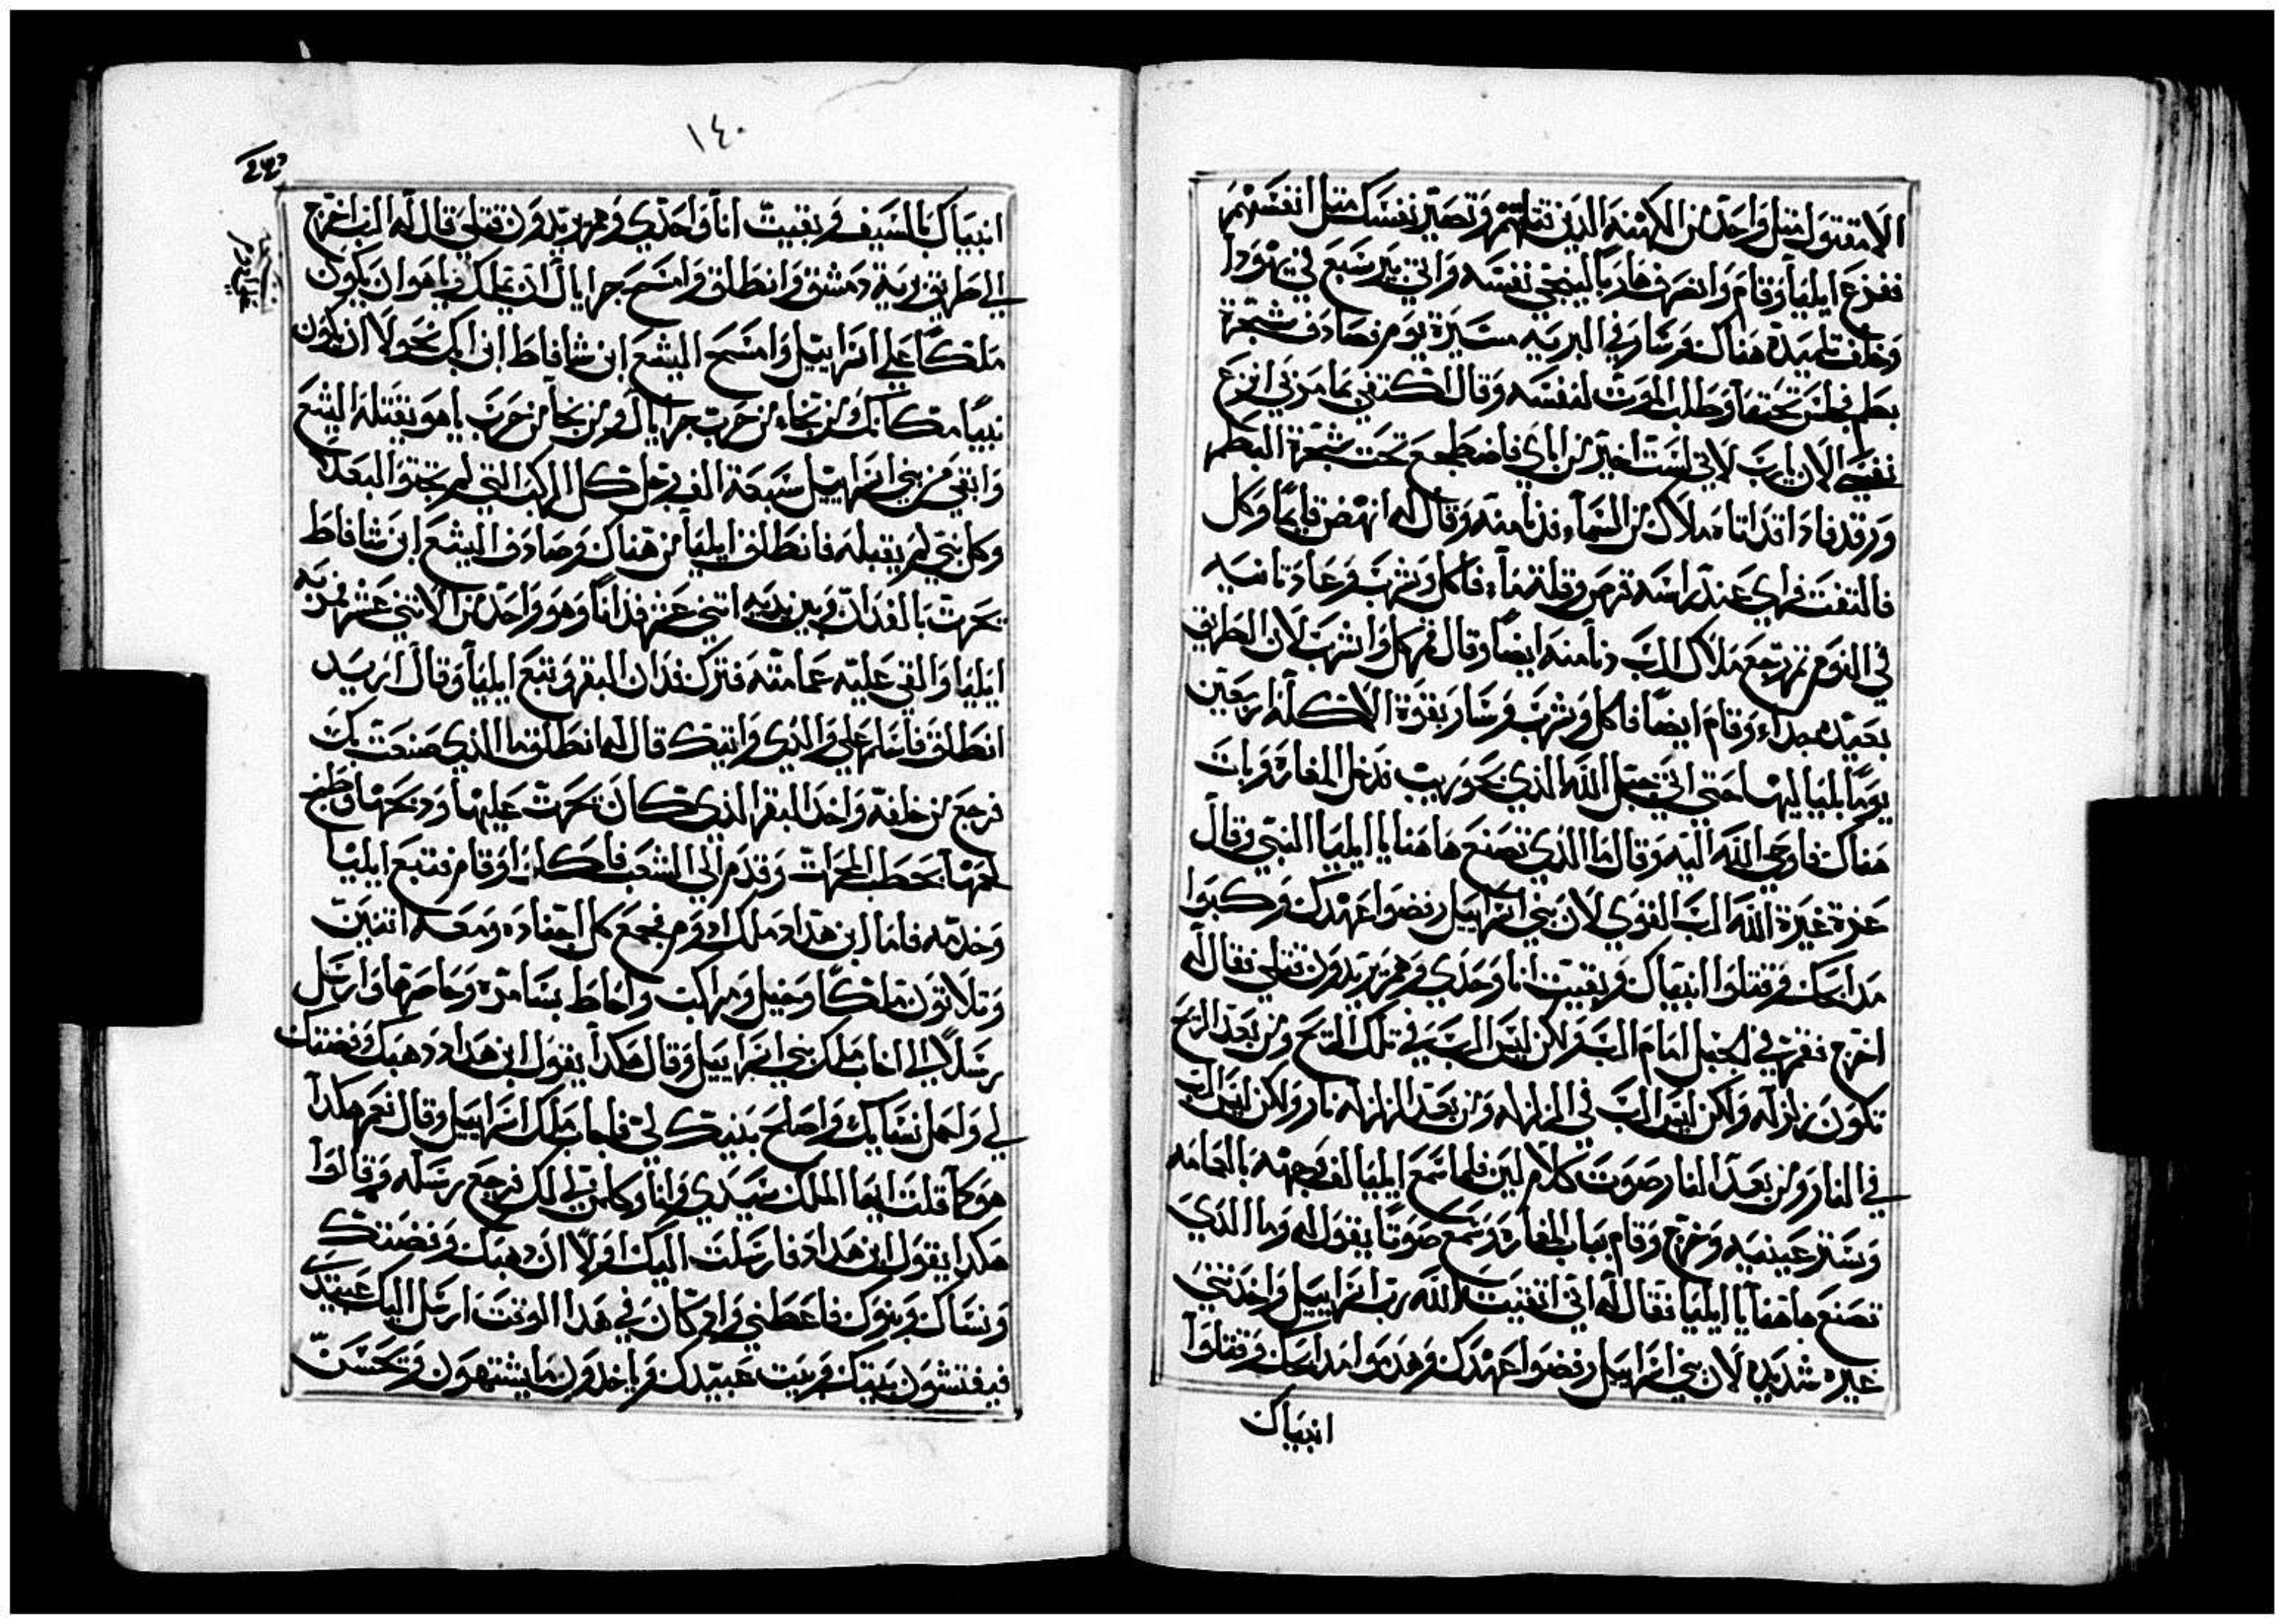 الا مقتول مثل واحد من الكهنه الدين قتلتهم وتصير نفسك مثل انفسهم
ففزع ايليا وقام وانصرف هاربا لينجي نفسه واتي بير سبع في يهودا
وخلف تلميده هناك وسار في البريه مسيرة يوم فصادف شجرة
بطم فجلس تحتها وطلب الموت لنفسه وقال اكتفي بما مر بي انزع
نفسي الان يا رب لاني لست اخير من اباي فاضطجع تحت شجرة البطم
ورقد فادا قد اتاه ملاك من السماء فدنا منه وقال له انهض قايما وكل
فالتفت فراي عند راسه قرص وقلة ماء فاكل وشرب وعاد تانيه
في النوم تم رجع ملاك الرب ودنا منه ايضا وقال قم كل واشرب لان الطريق
بعيده جداء وقام ايضا فاكل وشرب وسار بقوة الاكله اربعين
يوما بلياليها حتي اتي جبل الله الذي بحوريب فدخل المغاره وبات
هناك فاوحي الله اليه وقال ما الذي تصنع هاهنا يا ايليا النبي وقال
غرة غيرة الله الرب القوي لان بني اسراييل رفضوا عهدك وكبوا
مدابحك وقتلوا انبياك وبقيت انا وحدي وهم يريدون قتلي فقال له
اخرج فقم في الجبل امام الرب ولكن ليس الرب في تلك الريح ومن بعد الريح
تكون زلزله ولكن ليس الرب في الزلزله ومن بعد الزلزله نار ولكن ليس الرب
في النار ومن بعد النار صوت كلام لين فلما سمع ايليا لف وجهه بالعمامه
وستر عينيه وخرج وقام بباب المغاره وسمع صوتا يقول له وما الذي
تصنع هاهنا يا ايليا فقال له اني اتقيت الله رب اسراييل واخدتني
غيره شديده لان بني اسراييل رفضوا عهدك وهدموا مدابحك وقتلوا
انبياك
١٤٠
انبياك بالسيف وبقيت انا واحدي وهم يريدون قتلي قال له الرب اخرج
الي طريق برية دمشق وانطلق وامسح حزايال ان يملك وياهو ان يكون
ملكا علي اسراييل وامسح اليشع ابن شافاط ابن ابل محولا ان يكون
نبيا مكانك ومن نجا من حرب حزايال ومن نجا من حرب ياهو يقتله اليشع
وابقي من بني اسراييل سبعة الف رجل كل الركب التي لم تجتو البعلا
وكل نبي لم يقبله فانطلق ايليا من هناك وصادف اليشع ابن شافاط
يحرت بالفدان وبين يديه اتني عشر فدانا وهو واحد من الاتني عشر فمر به
ايليا والقي عليه عمامته فترك فدان البقر وتبع ايليا وقال اريد
انطلق فاسلم علي والدي واتيك قال له انطلق ما الذي صنعت بك
فرجع من خلفه واخد البقر الذي كان يحرت عليها ودبحها وطبخ
لحمها بحطب المحرات وقدم الي الشعب فاكلوا وقام فتبع ايليا
وخدمه فاما ابن هداد ملك ادوم فجمع كل اجناده ومعه اتنين
وتلاتون ملكا وخيل ومراكب واحاط بسامره وحاصرها وارسل
رسلا الي اخاب ملك بني اسراييل وقال هكدا يقول ابن هداد دهبك وفضتك
لي ولحمل نسايك واصلح بنيك لي فاجاب ملك اسراييل وقال نعم هكدا
هو كما قلت ايها الملك سيدي وانا وكلمن لي لك فرجع رسله وقالوا
هكدا يقول ابن هداد فارسلت اليك اولا ان دهبك وفضتك
ونساك وبنوك فاعطني واد كان في هدا الوقت ارسل اليك عبيدي
فيفتشون بيتك وبيت عبيدك وياخدون ما يشتهون وتحسن